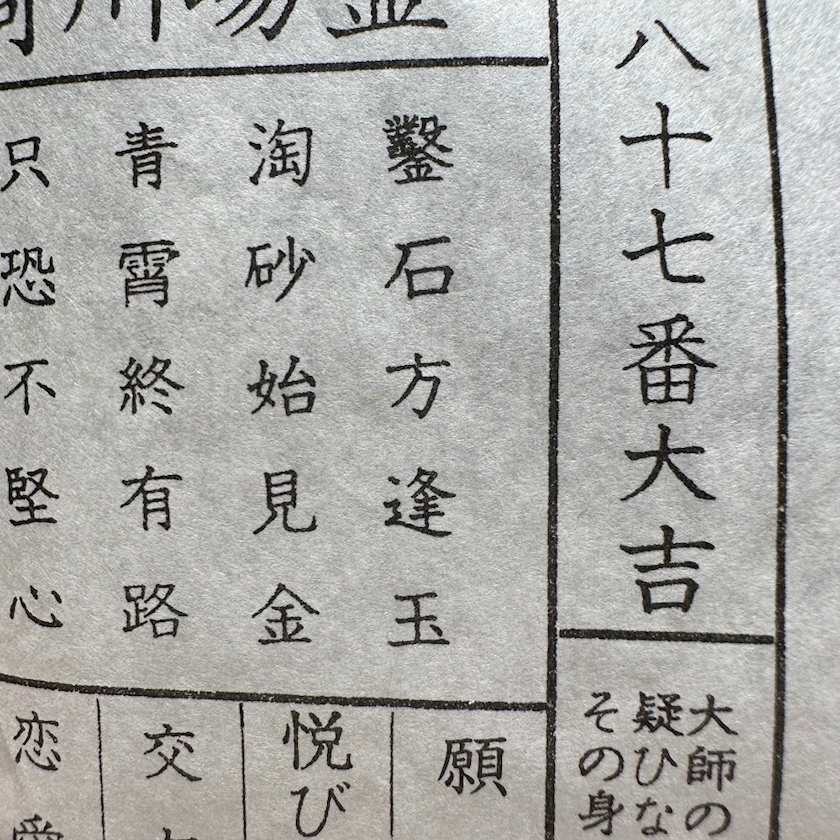 八十七番大吉
大師の
疑ひな
その身
鑿石方逢玉
淘砂始見金
青霄終有路
只恐不堅心
願
悦び
交
恋愛